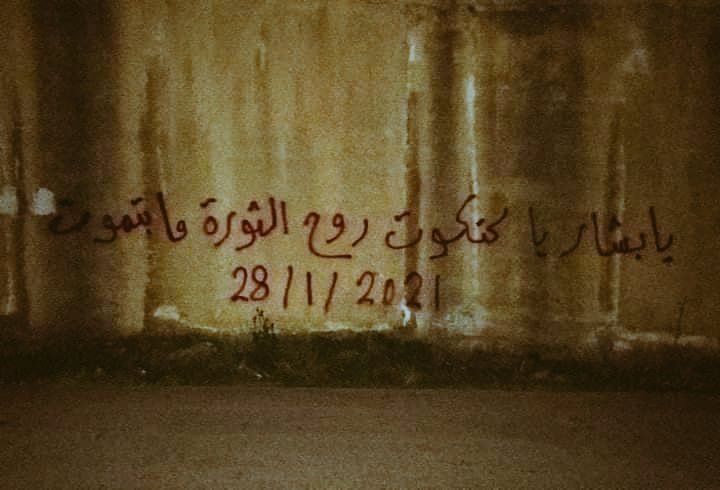 يا بشار يا كحتكوت روح الثورة ما بتموت
28/1/2021